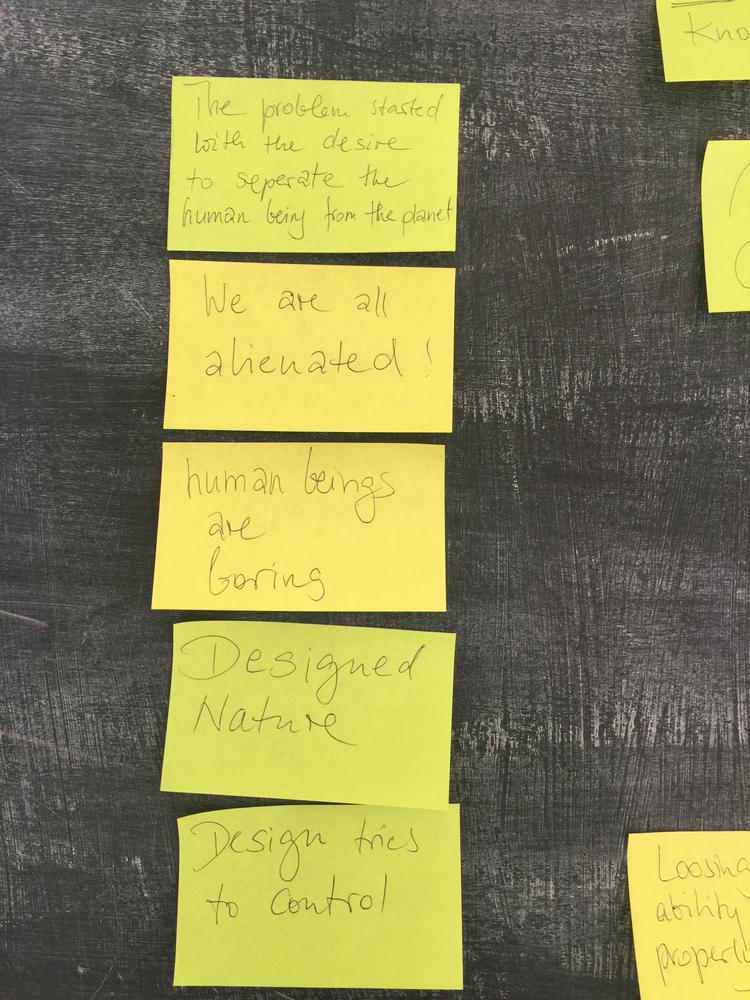 The problem started
with the desire
to seperate the
human being from the planet
We are all
alienated!
human beings
are
boring
Designed
Nature
Design tries
to control
Loosing
ability
properly